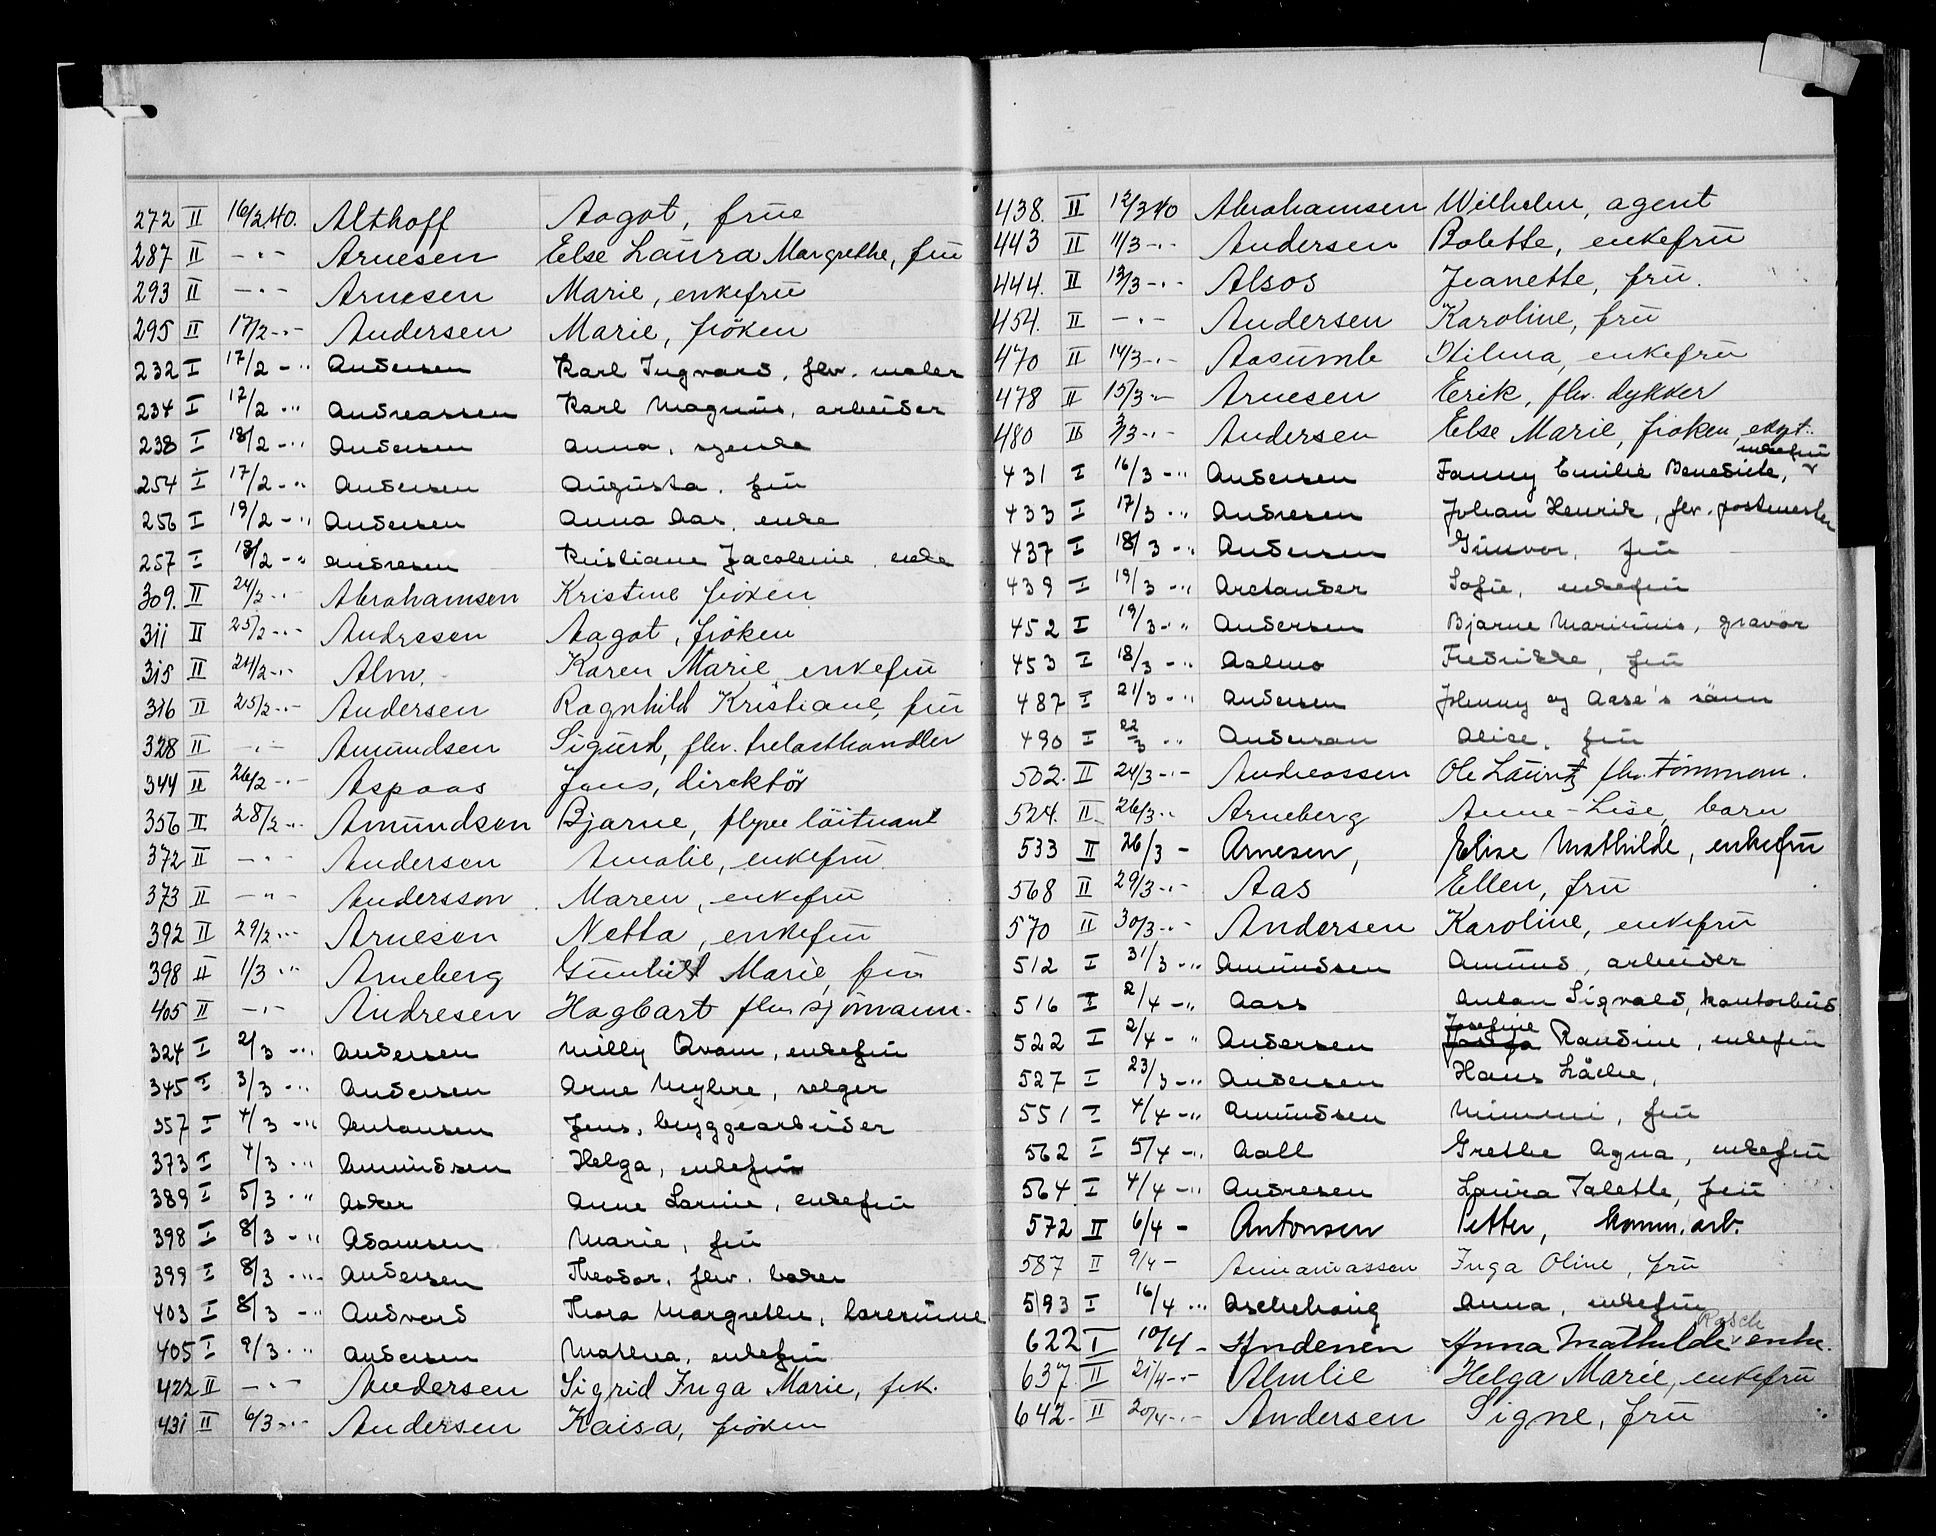 272 II 16/2 40. Althoff Aagot, frue
287 II -"- Arnesen Else Laura Margrethe, fru
293 II -"- Arnesen Marie, enkefru
295 II 17/2 -"- Andersen Marie, frøken
232 I 17/2 -"- Andersen Karl Ingvard, fhv. maler
234 I 17/2 -"- Andreassen Karl Magnus, arbeider
238 I 18/2 -"- Andersen Anna, syerske
254 I 17/2 -"- Andersen Augusta, fru
256 I 19/2 -"- Andersen Anna Aas, enke
257 I 18/2 -"- Andresen Kristiane Jacobine, enke
309. II 24/2 -"- Abrahamsen Kristine frøken
311 II 25/2 -"- Andresen Aagot, frøken
315 II 24/2 -"- Alm. Karen Marie, enkefru
316 II 25/2 -"- Andersen Ragnhild Kristiane, fru
328 II -"- Amundsen Sigurd, fhv. trelasthandler
344 II 26/2 -"- Aspaas Jens, direktør
356 II 28/2 -"- Amundsen Bjarne, flyveløitnant
372 II -"- Andersen Amalie, enkefru
373 II -"- Andersson Maren, enkefru
392 II 29/2 -"- Arnesen Netta, enkefru
398 II 1/3 -"- Arneberg Gunhild Marie, fru
405 II -"- Andresen Hagbart fhv. sjømann.
324 I 2/3 -"- Andersen Milly Avam, enkefru
345 I 3/3 -"- Andersen Arne Myhre, selger
357 I 4/3 -"- Antonsen Jens, bryggearbeider
373 I 4/3 -"- Amundsen Helga, enkefru
389 I 5/3 -"- Asker Anne Larine, enkefru
398 I 8/3 -"- Adamsen Marie, fru
399 I 8/3 -"- Andersen Theodor, fhv. baker
403 I 8/3 -"- Andvord Thora Margrethe, lærerinne
405 I 9/3 -"- Andersen Mathea, enkefru
422 II -"- Andersen Sigrid Inga Marie, frk.
431 II 6/3 -"- Andersen Kaisa, frøken
438. II 12/3 40 Abrahamsen Wilhelm, agent
443 II 11/3 -"- Andersen Bolette, enkefru
444. II 13/3 -"- Alsos Jeanette, fru.
454. II -"- Andersen Karoline, fru
470 II 14/3 -"- Aasumb Hilma, enkefru
478 II 15/3 -"- Arnesen Erik, fhv. dykker
480 II 3/3 -"- Andersen Else Marie, frøken, eksp.
431 I 16/3 -"- Andersen Fanny Emilie Benedicte, enkefru
433 I 17/3 -"- Andresen Johan Henrik, fhv. postmester
437 I 18/3 -"- Andersen Gunvor, fru
439 I 19/3 -"- Arctander Sofie, enkefru
452 I 19/3 -"- Andersen Bjarne Marinius, gravør
453 I 18/3 -"- Aalmo Fredrikke, fru
487 I 21/3 -"- Andersen Johnny og Aase's sønn
490 I 22/3 -"- Anderson Alice, fru
502. II 24/3 -"- Andreassen Ole Lauritz fhv. tømmerm.
524. II 26/3 -"- Arneberg Anne-Lise, barn
533 II 26/3 - Arnesen, Elise Mathilde, enkefru
568 II 29/3 -"- Aas Ellen, fru
570 II 30/3 -"- Andersen Karoline, enkefru
512 I 31/3 -"- Amundsen Amund, arbeider
516 I 2/4 -"- Aass Anton Sigvald, kontorbud
522 I 2/4 -"- Andersen Josefine Randine, enkefru
527 I 23/3 -"- Andersen Hans Låche,
551 I 4/4 -"- Amundsen Mimmi, fru
562 I 5/4 -"- Aall Grethe Agna, enkefru
564 I 4/4 -"- Andresen Laura Talette, fru
572 II 6/4 - Antonsen Petter, komm. arb.
587 II 9/4 - Inga Oline, fru
593 I 16/4 -"- Aschehoug Anna, enkefru
622 I 10/4 - Andenen Anna Mathilde Rasch enke.
637. II 21/4 -"- Almlie Helga Marie, enkefru
642. II 20/4 -"- Andersen Signe, fru